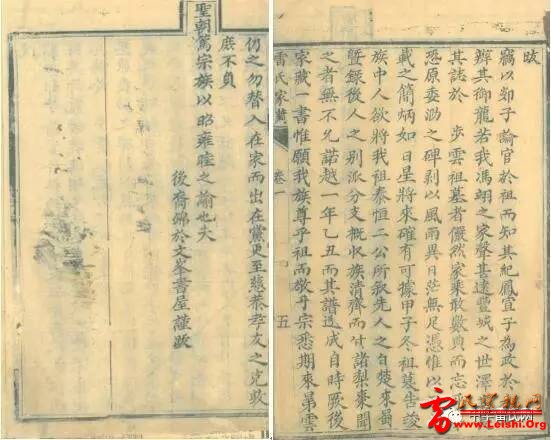 跋
竊以郯子論官於祖而知其紀鳳宣子為政於
辨其御龍若我馮翊之家聲甚遠豐城之世澤
其誌於 步雲祖墓者儼然家乘敢數典而忘
恐原委泐之碑剥以風雨異日茫無足憑惟以
載之簡炳如日星將來確有可據甲子冬祖墓告竣
族中人欲將我祖泰恒二公所敘先人之自楚來蜀
暨錄後人之別派分支概收族清齊而付諸梨棗聞
之者無不允諾越一年乙丑而其譜遂成自時厥後
家藏一書惟願我族尊乎祖而敬乎宗悉期來昴雲
雷氏家 卷一 五
仍之勿替入在家而出在黨更至慈恭孝友之克敦
庶不負
聖朝篤宗族以昭雍睦之諭也夫
後裔錦於文峯書屋謹跋
中华雷氏网
www.Leishi.Org